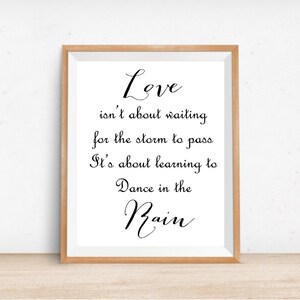 Love
isn't about waiting
for the storm to pass
It's about learning to
Dance in the
Rain